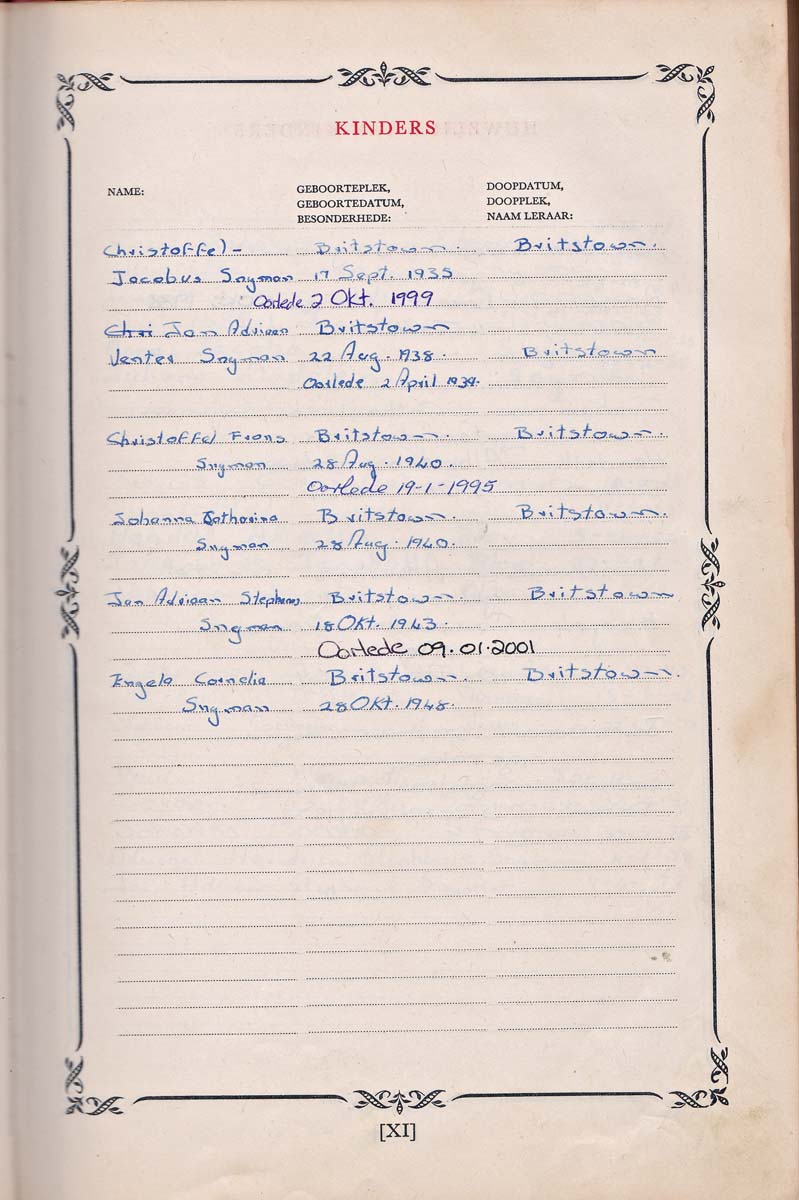 KINDERS
NAME: GEBOORTEPLEK, DOOPDATUM,
GEBOORTEDATUM, DOOPPLEK,
BESONDERHEDE: NAAM LERAAR:
Christoffel- Britstown. Britstown.
Jacobus Snyman 17 Sept. 1935
Oorlede 2 Okt. 1999
Chri Jan Adriaan Britstown
Venter Snyman 22 Aug. 1938. Britstown
Oorlede 2 April 1939.
Christoffel Frans Britstown. Britstown.
Snyman 28 Aug. 1940.
Oorlede 19-1-1995
Johanna Catharina Britstown. Britstown.
Snyman 28 Aug. 1940.
Jan Adriaan Stephanus Britstown. Britstown
Snyman 18 Okt. 1943.
Oorlede 09.01.2001
Engela Cornelia Britstown. Britstown.
Snyman 28 Okt. 1948.
[XI]